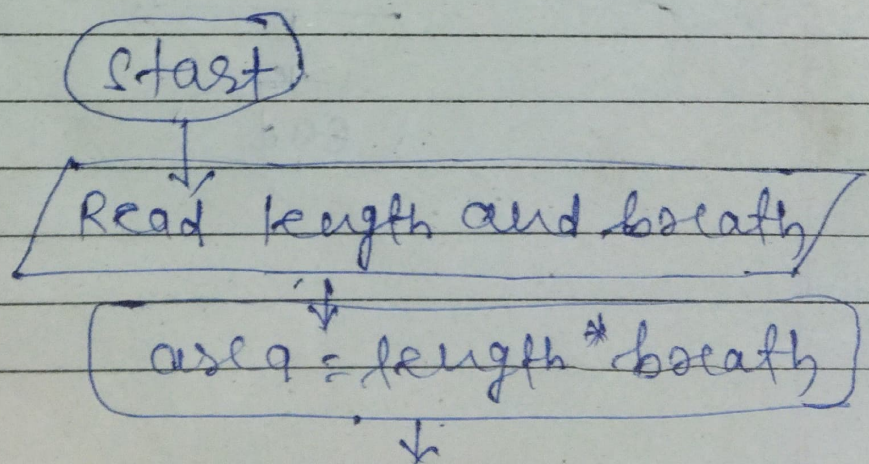 Start
Read length and breath
area = length * breath